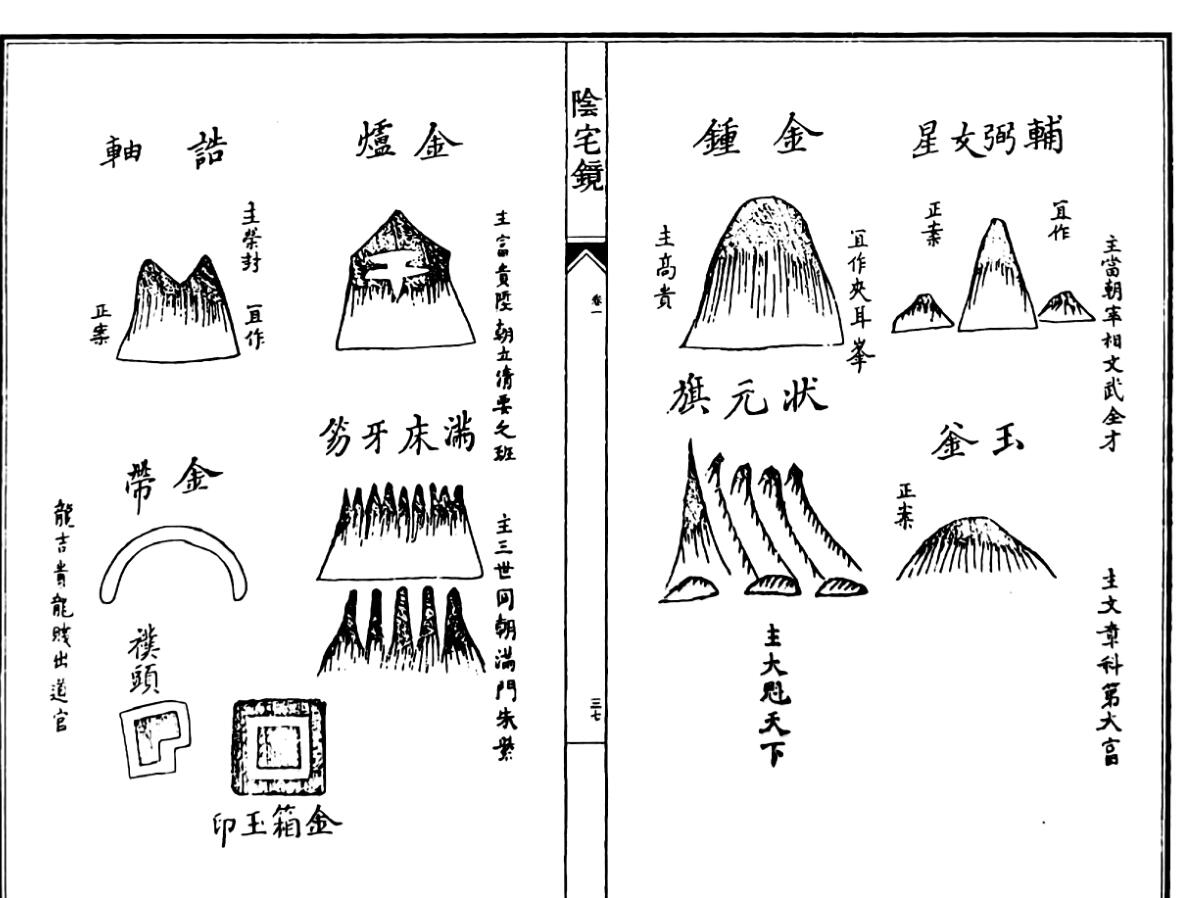 輔弼文星
宜作
正案
主當朝宰相文武全才
金鍾
宜作夾耳峯
主高貴
玉釜
正案
主文章科第大富
狀元旗
主大魁天下
陰宅鏡
卷一
三七
金爐
主富貴陞朝立清要之班
誥軸
主榮封
宜作
正案
滿床牙笏
主三世同朝滿門朱紫
金帶
龍吉貴龍賤出道官
襆頭
金箱玉印